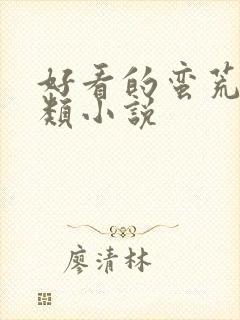 好看的蛮荒
類小説
廖清林